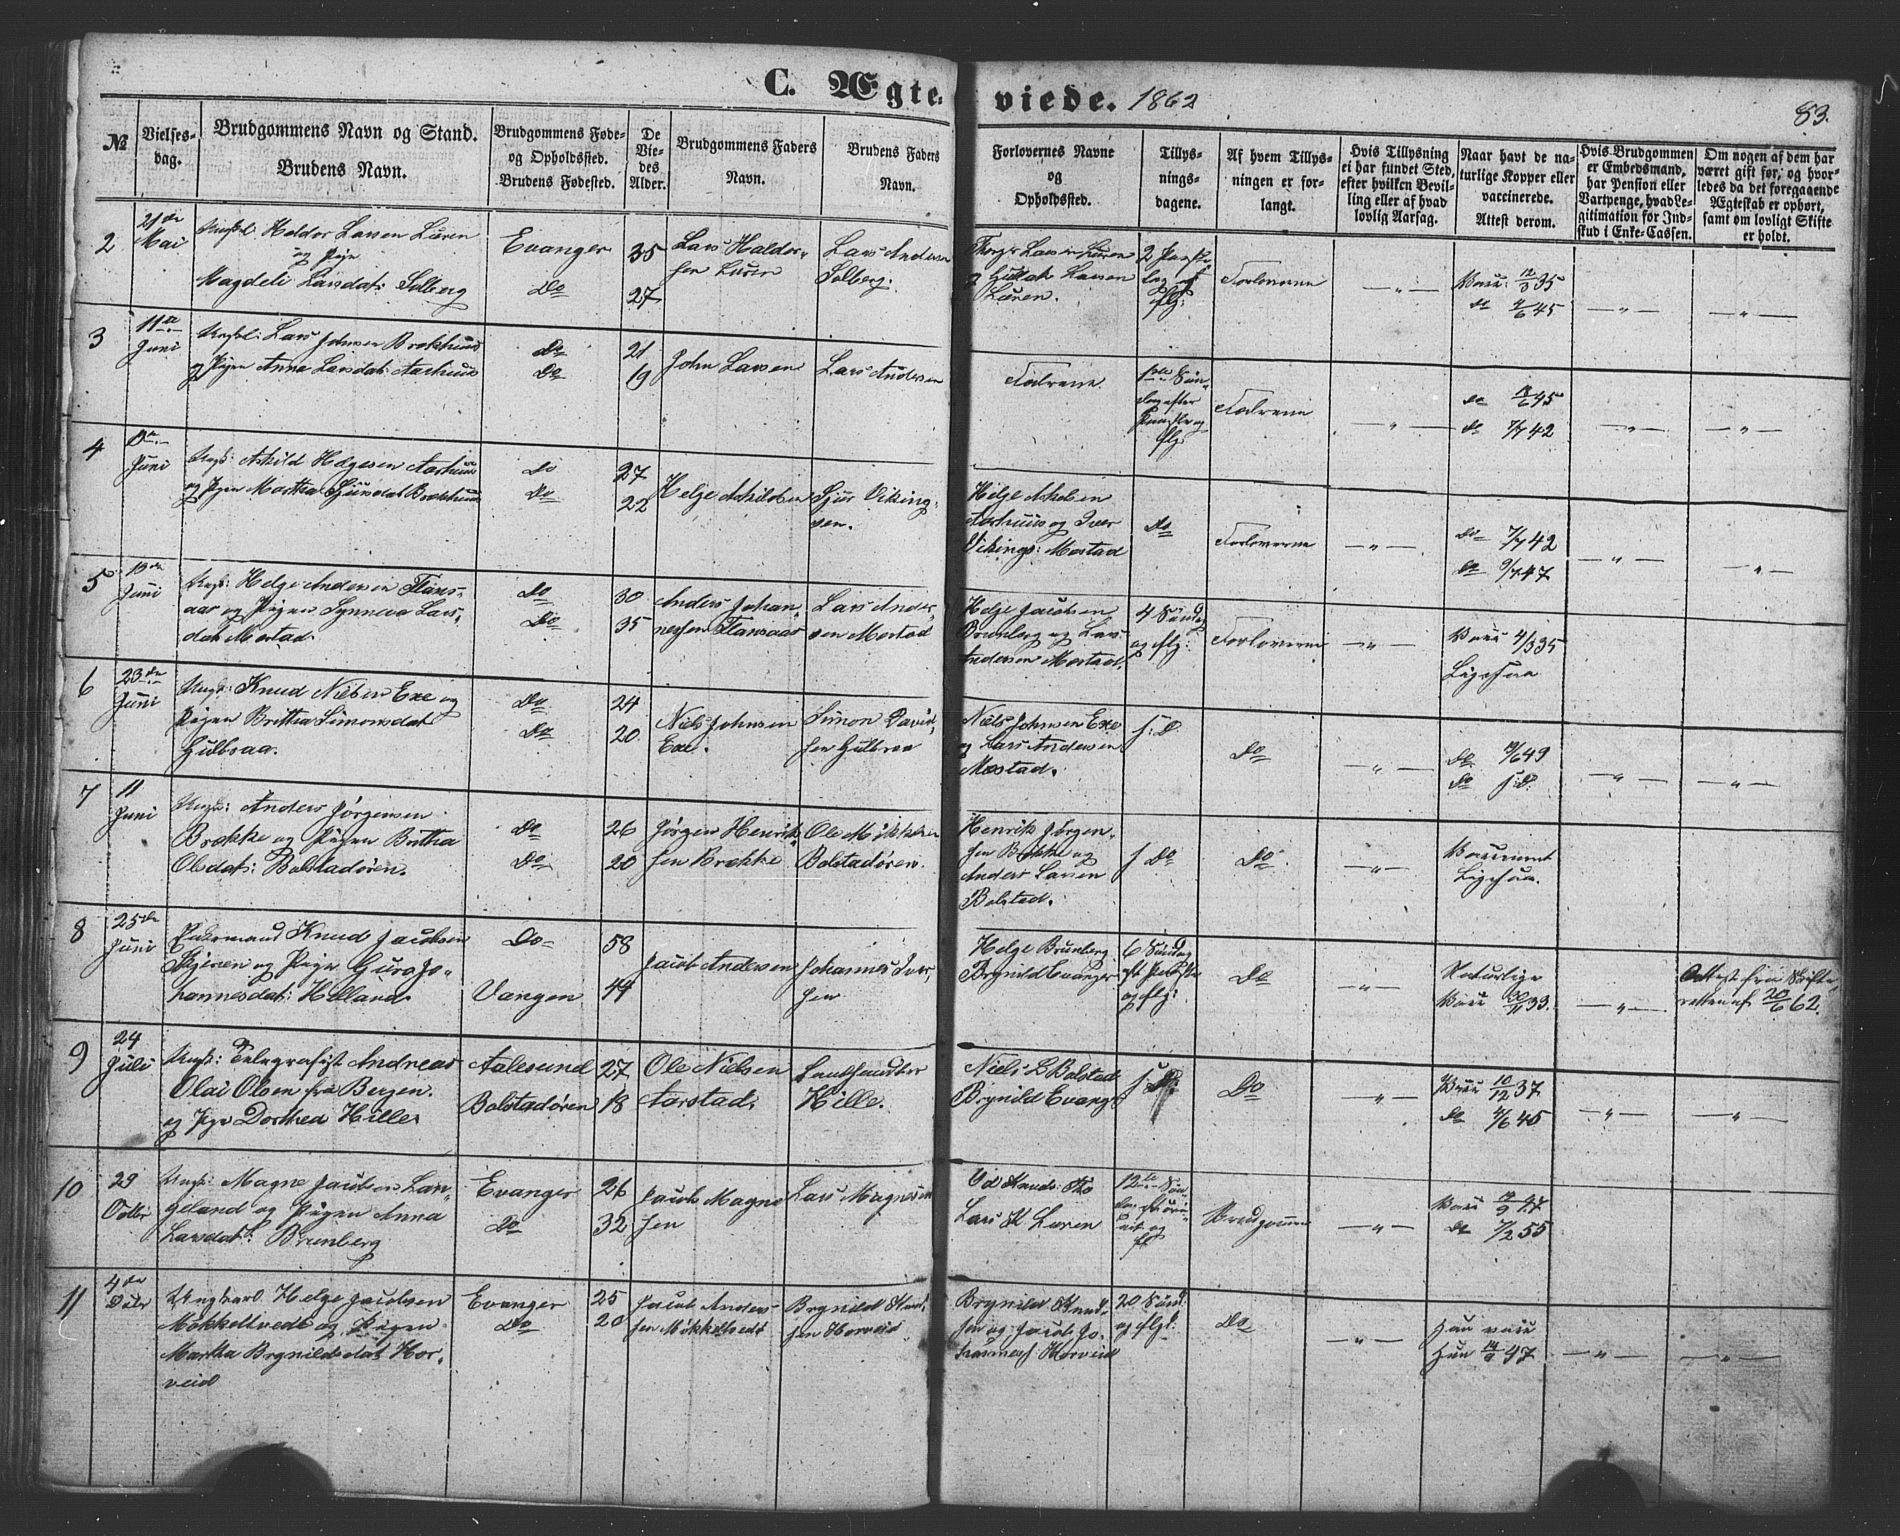 C. Ægte- viede. 1862
83.
№
Vielses-
dag.
Brudgommens Navn og Stand.
Brudens Navn.
Brudgommens Føde-
og Opholdssted.
Brudens Fødested.
De
Vie-
des
Alder.
Brudgommens Faders
Navn.
Brudens Faders
Navn.
Forlovernes Navne
og
Opholdssted.
Tillys-
nings-
dagene.
Af hvem Tillys-
ningen er for-
langt.
Hvis Tillysning
ei har fundet Sted,
efter hvilken Bevil-
ling eller af hvad
lovlig Aarsag.
Naar havt de na-
turlige Kopper eller
vaccinerede.
Attest derom.
Hvis Brudgommen
er Embedsmand,
har Pension eller
Vartpenge, hvad Le-
gitimation for Ind-
skud i Enke-Cassen.
Om nogen af dem har
været gift før, og hvor-
ledes da det foregaaende
Ægteskab er ophørt,
samt om lovligt Skifte
er holdt.
2
21de
Mai
Ungkl: Haldor Larsen Lüren
og Pige
Magdeli Larsdat: Solberg
Evanger
Do
35
27
Lars Haldor-
sen Luren
Lars Andersen
Solberg.
Larsen Lüren
Larsen
Lüren.
2 Pintse
dag og
flg:
Forloverne
— " —
Vacc: 12/3 35
do 4/6 45
— " —
— " —
3
11te
Juni
Ungkl: Lars Johnsen Brækhuus
og Pigen Anna Larsdat: Aarhuus
Do
Do
21
19
John Larsen
Lars Andersen
Fædrene
1ste Søn-
dag efter
Pintse og
flg
Fædrene
— " —
do 45
do 7/7 42
— " —
— " —
4
Juni
Ungk: Askild Helgesen Aarhuus
og Pigen Martha Sjursdat Brækhuus
do
Do
27
22
Helge Askildsen
Sjur Viking-
sen.
Helge
Aarhuus og Iver
Vikings: Mestad
Do
Forloverne
— " —
Do 7/7 42
do 9/7 47
— " —
— " —
5
19de
Juni
Ungk: Helge Andersen Flans-
aas og Pigen Synneva Lars-
dat Mestad.
Do
Do
30
35
Anders Johan-
nessen Flansaas
Lars Ander-
sen Mestad
Helge Jacobsen
Brunberg og Lars
Andersen Mestad.
4 Søndag
og flg:
Forloverne
— " —
Vacc 4/3 35
Ligesaa
6
23de
Juni
Ungk: Knud Nielsen Exe og
Pigen Brittha Simonsdat
Gulbraa.
Do
Do
24
20
Niels Johnsen
Exe.
Simon David-
sen Gulbraa
Niels Johnsen Exe
og Lars Andersen
Mestad.
s: D.
Do
— " —
Do 49
do s: D.
— " —
— " —
7
11
Juni
Ungk: Anders Jørgensen
Brække og Pigen Brittha
Olsdat: Bolstadøren.
Do
Do
26
20
Jørgen Henrik-
sen Brekke
Ole
Bolstadøren.
Henrik Jørgen-
sen Bække og
Anders Larsen
Bolstad.
s Do
Do
— " —
Ligesaa.
8
25de
Juni
Enkemand Knud Jacobsen
og Pige Guro Jo-
hannesdat: Helland.
Do
Vangen
58
44
Jacob Andersen
Johannes Iver-
sen
Helge Brunberg
Brynild Evanger
6 Søndag
og flg:
Do
— " —
Naturlige
Vacc 33.
— " —
Attest fra Skifte-
retten af 20/6 62.
9
24
Juli
Ungk: Telegrafist Andreas
Olai Olsen fra Bergen.
og Pige Dorthea Hille
Aalesund
Bolstadøren
27
18
Ole Nielsen
Aarstad.
Landhandler
Hille.
Niels L Bolstad
Brynild Evang:
s: D.
Do
— " —
Vacc 10/12 37
do 4/6 45
— " —
— " —
10
29
Octbr
Ungk: Magne Jacobsen Lan-
geland og Pigen Anna
Larsdat: Brunberg
Evanger
Do
26
32
Jacob Magne
sen
Lars Magnesen
Lars K Luren
12te Søn-
og
fl
Brudgommen
— " —
Vacc
do 7/2 55
11
4de
Octbr
Ungkarl Helge Jacobsen
Møkkeltvedt og Pigen
Martha Brynildsdat Hor-
veid
Evanger
Do
25
20
Jacob Anders-
sen Møkkeltvedt
Brynild Knud-
sen Horveid
Brynild Knud-
sen og Jacob Jo-
hanness: Horveid
20 Sønd
og flg:
Do
— " —
Han vacc
Hun 47
— " —
— " —